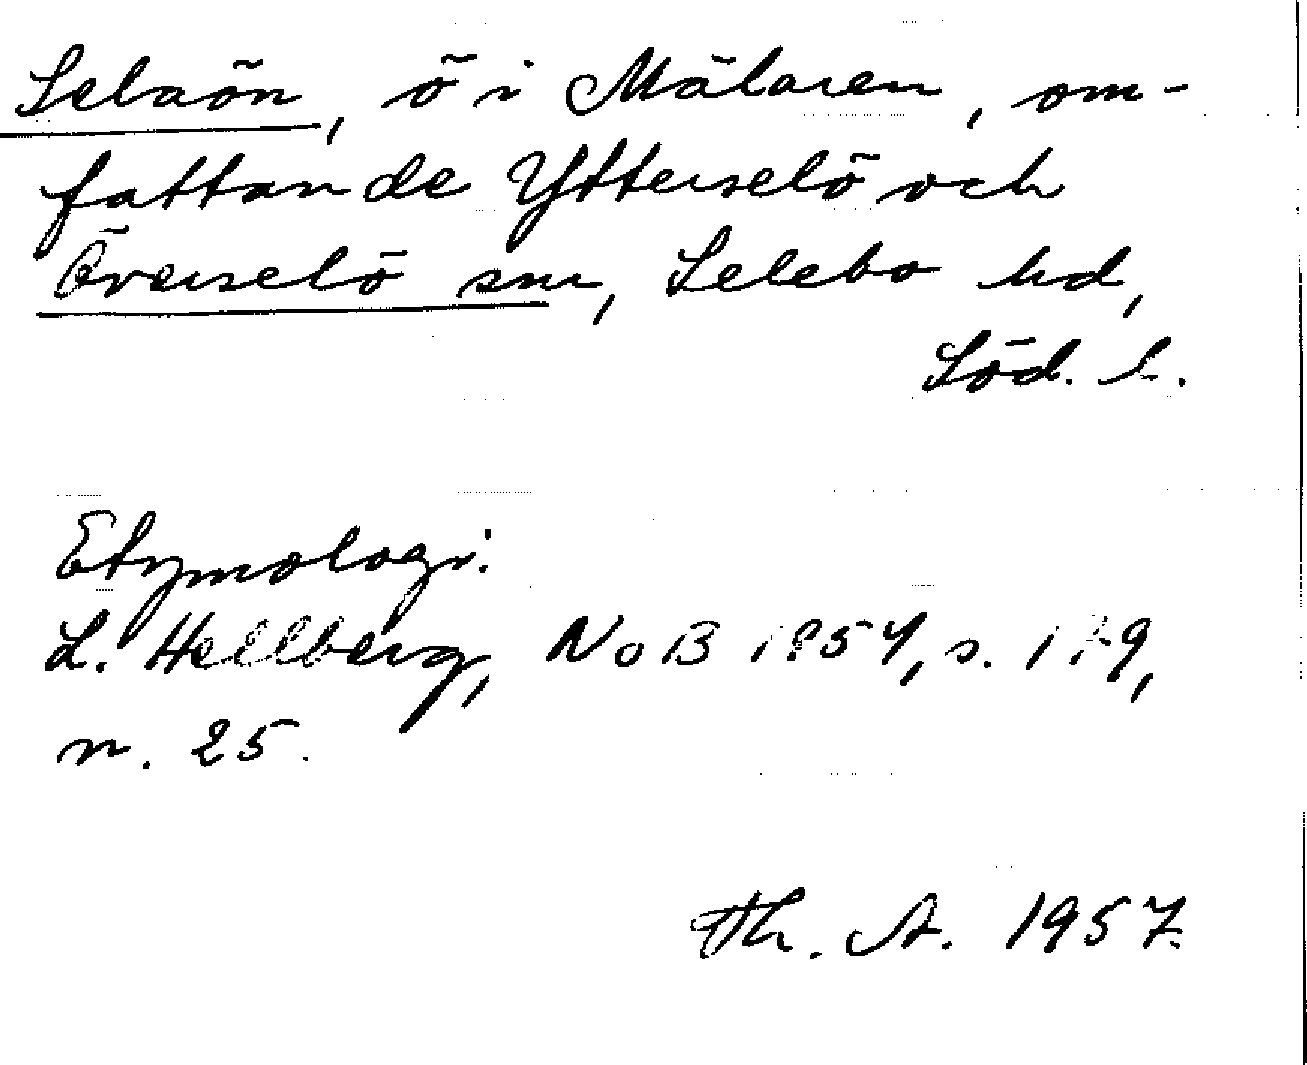 Selaön, ö i Mälaren, om-
fattande Ytterselö och
Överselö snr, Selebo hd,
Söd. l.
Etymologi:
L. Hellberg, NoB 1954, s.
n. 25.
Th. A. 1957.